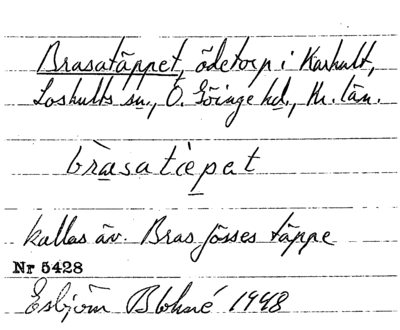 Brasatäppet, ödetorp i Karhult,
Loshults sn., Ö. Göinge hd., Kr. län.
bràsatèpat
kallas äv. Bras Jösses täppe
Nr 5428
Esbjörn Blohmé 1948